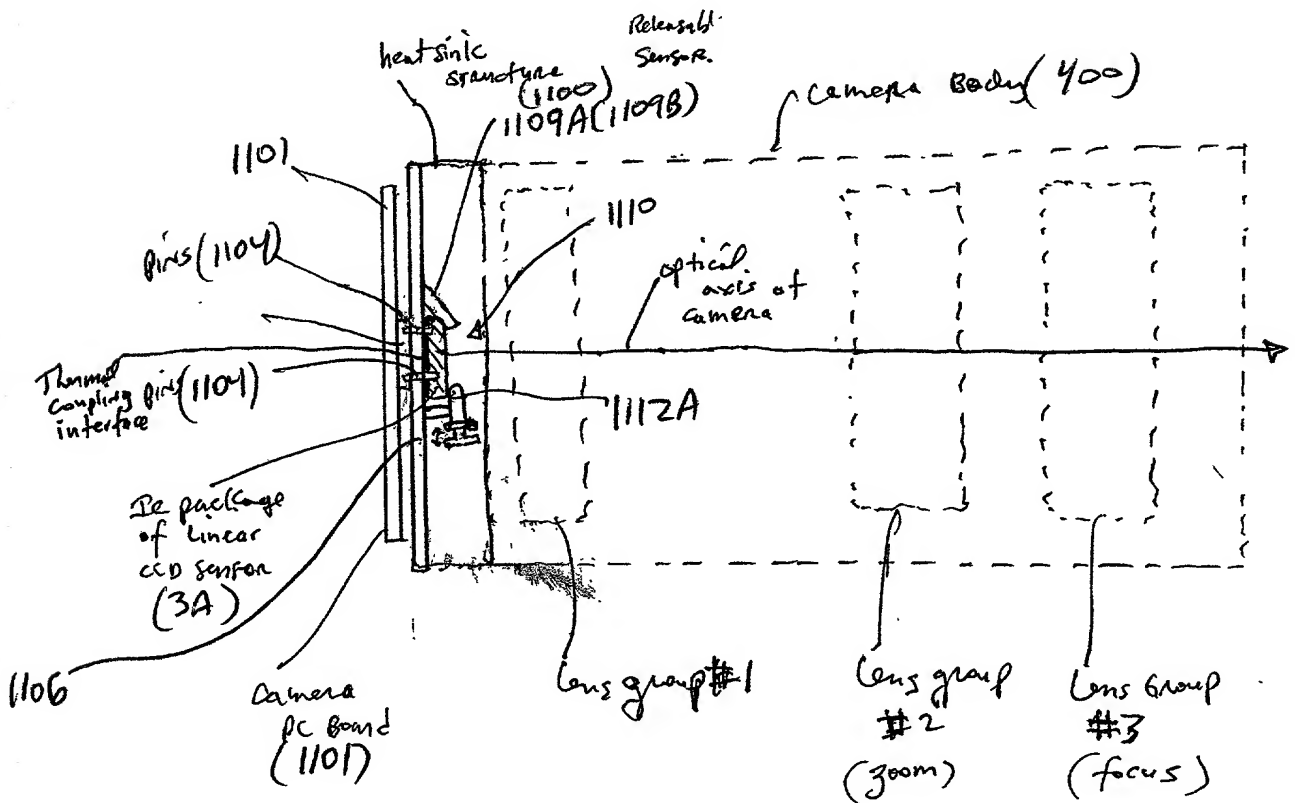 Releasabl.
Sensor.
heatsink
structure
(1100)
1109A(1109B)
Camera Body (400)
1101
1110
pins (1104)
optical
axis of
camera
Thermal
coupling
interface
pins (1104)
1112A
IC package
of Linear
CCD sensor
(3A)
1106
camera
PC Board
(1101)
Lens group #1
Lens group
#2
(zoom)
Lens Group
#3
(focus)